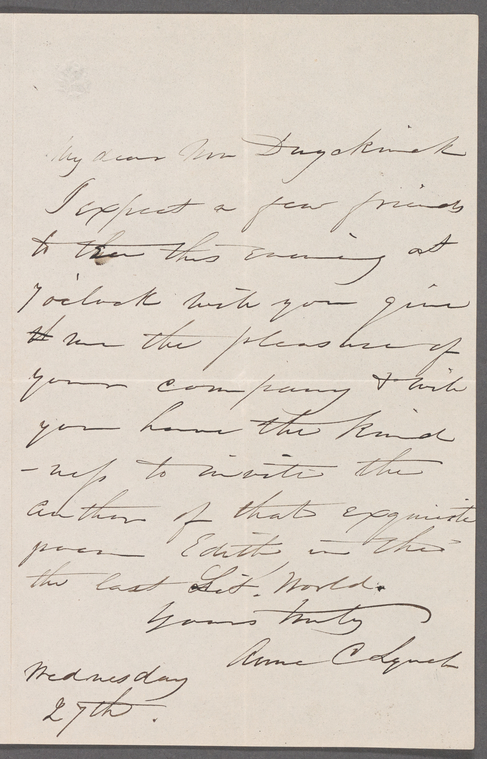 My dear Mr Duyckinck
I expect a few friends
to tea this evening at
7 o'clock will you give
me the pleasure of
your company & will
you have the kind
-ness to invite the
author of that exquisite
poem Edith in the
the last Lit. World.
Yours truly
Anne C Lynch
Wednesday
27th.